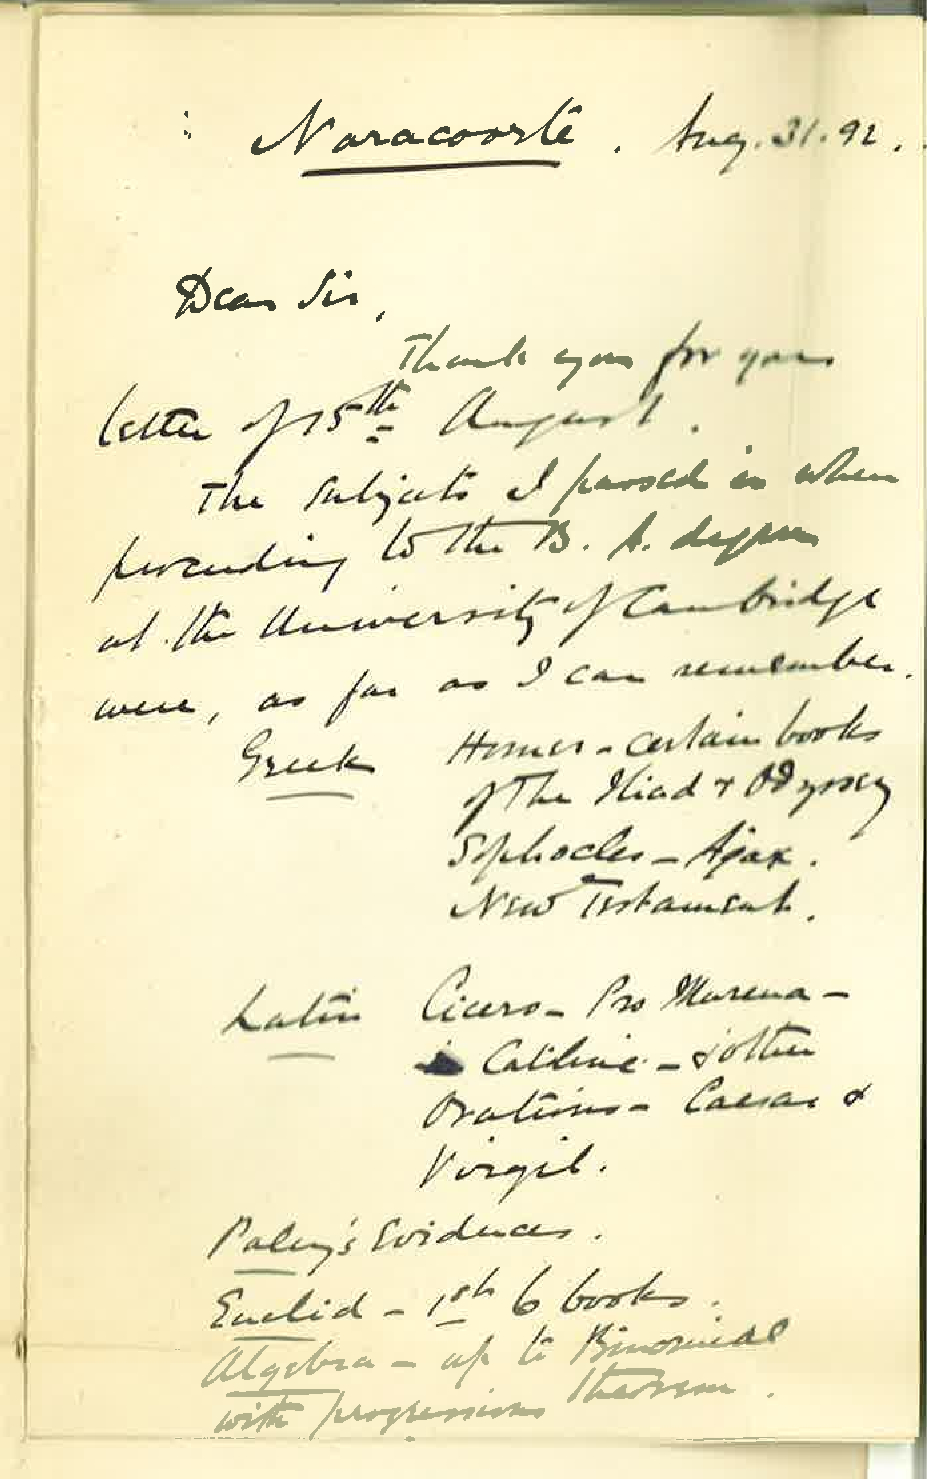 Naracoorte. Aug. 31. 92.
Dear Sir,
Thank you for your
letter of 15th August.
The subjects I passed in when
proceeding to the B. A. degree
at the University of Cambridge
were, as far as I can remember.
Greek Homer - certain books
of the Iliad & Odyssey
Sophocles - Ajax.
New Testament.
Latin Cicero - Pro Murena -
Catiline - & other
Orations - Caesar &
Virgil.
Paley's Evidences.
Euclid - 1st 6 books.
Algebra - up to Binomial
theorem.
with progressions